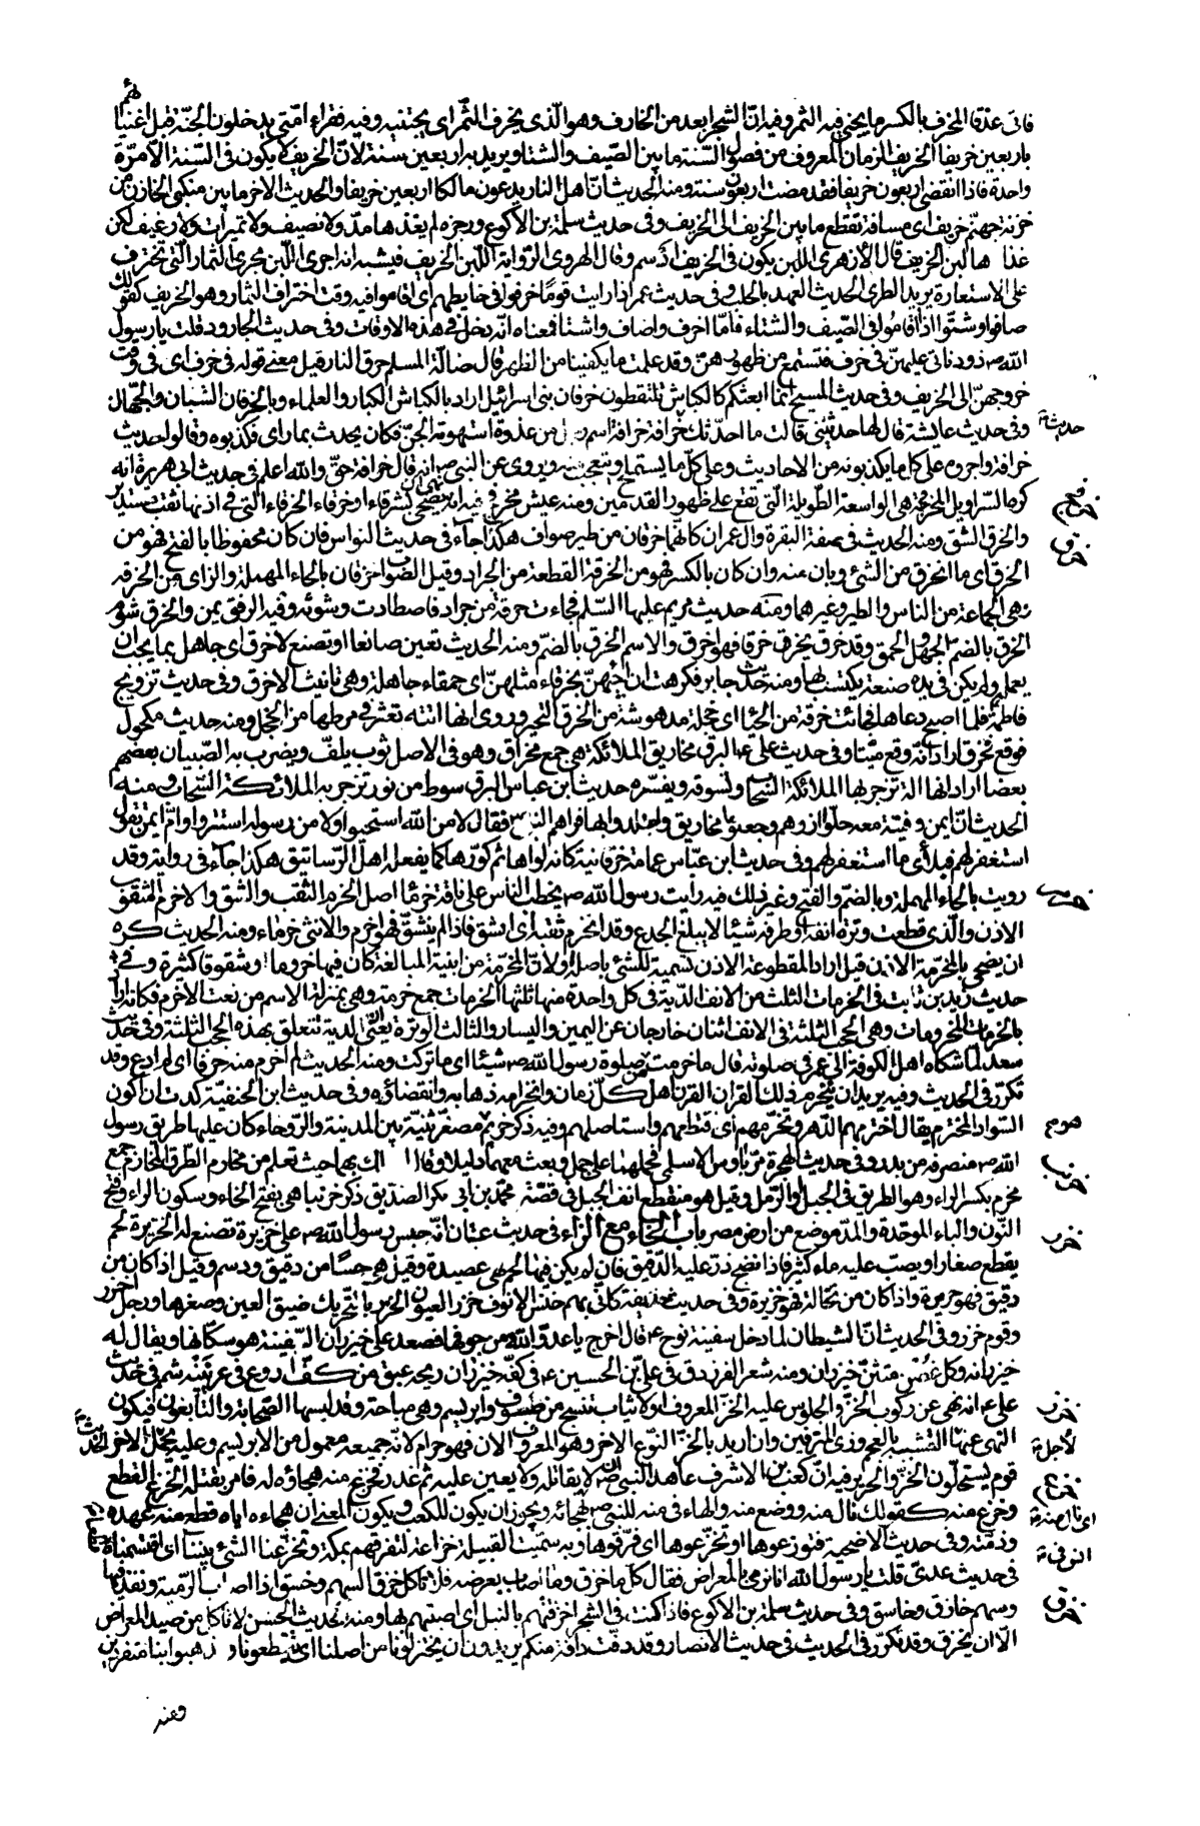 فاتى عذقا المخرف بالكسر ما يجنى فيه الثمر وفيه انّ الشجر ابعد من الخارف وهو الّذى يخرف الثّمر اى يجتنيه وفيه فقراء امّتى يدخلون الجنّة قبل اغنيائهم
باربعين خريفا الخريف الزمان المعروف من فصول السّنة ما بين الصّيف والشتاء ويريد به اربعين سنة لانّ الخريف لا يكون فى السّنة الّا مرّة
واحدة فاذا انقضى اربعون خريفا فقد مضت اربعون سنة ومنه الحديث انّ اهل النار يدعون مالكا اربعين خريفا والحديث الاخر ما بين منكبى الخازن من
خزنة جهنّم خريف اى مسافة تقطع ما بين الخريف الى الخريف وفى حديث سلمة بن الاكوع ورجزه لم يغذها مدّ ولا نصيف ولا تميرات ولا رغيف لكن
غذا ها لبن الخريف قال الأزهرى اللبن يكون فى الخريف ادسم وقال الهروى الرّواية اللّبن الخريف فيشبه انه اجرى اللّبن مجرى الثمار الّتى تخترف
على الاستعارة يريد الطرى الحديث العهد بالحلب وفى حديث عمر اذا رايت قوما خرفوا فى حايطهم اى اقاموا فيه وقت اختراف الثمار وهو الخريف كقولك
صافوا وشتّوا اذا اقاموا فى الصّيف والشتاء فامّا اخرف واضاف واشتا فمعناه انّه دخل فى هذه الاوقات وفى حديث الجارود قلت يا رسول
الله ص ذود ناتى عليهنّ فى خرف فنستمتع من ظهورهنّ وقد علمت ما يكفينا من الظهر قال ضالّة المسلم حرق النار قيل معنى قوله فى خرف اى فى وقت
خروجهنّ الى الخريف وفى حديث المسيح انما ابعثكم كالكباش تلتقطون خرفان بنى اسرائيل اراد بالكباش الكبار والعلماء وبالخرفان الشبان والجهّال
وفى حديث عايشة قال لها حدثينى قالت ما احدثك حديث خرافة خرافة اسم رجل من عذرة استهوته الجنّ فكان يحدث بما راى فكذبوه وقالوا حديث
خرافة واجروه على كل ما يكذبونه من الاحاديث وعلى كلّ ما يستملح ويتعجب منه ويروى عن النبى ص انه قال خرافة حقّ والله اعلم فى حديث ابى هريرة انه
خرفج كره السّراويل المخرفجة هى الواسعة الطّويلة الّتى تقع على ظهور القدمين ومنه عيش مخرفج
خرق والخرق الشق ومنه الحديث فى صفة البقرة وال عمران كانّهما خرقان من طير صواف هكذا جآء فى حديث النواس فان كان محفوظا بالفتح فهو من
الخرق اى ما انخرق من الشئ وبان منه وان كان بالكسر فهو من الخرقة القطعة من الجراد وقيل الصّواب حزقان بالحاء المهملة والزاى من الحزقة
وهى الجماعة من الناس والطير وغيرهما ومنه حديث مريم عليها السّلم فجاءت خرقة من جراد فاصطادت وشوته وفيه الرفق يمن والخرق شوم
الخرق بالضم الجهل والحمق وقد خرق يخرق خرقا فهو اخرق والاسم الخرق بالضمّ ومنه الحديث تعين صانعا او تصنع لاخرق اى جاهل بما يجب ان
يعمله ولم يكن فى يده صنعة يكتسب بها ومنه حديث جابر فكرهت ان اجيئهنّ بخرقاء مثلهنّ اى حمقاء جاهلة وهى تانيث الاخرق وفى حديث تزويج
فاطمة فلما اصبح دعاها فجائت خرقة من الحيا اى خجلة مدهوشة من الخرق التحير وروى انها اتته تعثر فى مرطها من الخجل ومنه حديث مكحول
فوقع فخرق اراد انه وقع ميتا وفى حديث على ع البرق مخاريق الملائكة هى جمع مخراق وهو فى الاصل ثوب يلفّ ويضرب به الصّبيان بعضهم
بعضا اراد انها الة تزجر بها الملائكة السّحاب وتسوقه ويفسّره حديث ابن عباس البرق سوط من نور تزجر به الملائكة السّحاب ومنه
الحديث انّ ايمن وفتية معه حلّوا ازرهم وجعلوها مخاريق واجتلدوا بها فراهم النبى ص فقال لا من الله استحيوا ولا من رسوله استتروا وامّ ايمن تقول
استغفر لهم فبلأى ما استغفر لهم وفى حديث ابن عبّاس عمامة خرقانية كانه لواها ثم كوّرها كما يفعله اهل الرّساتيق هكذا جآء فى رواية وقد
خرم رويت بالحاء المهملة وبالضمّ والفتح وغير ذلك فيه رايت رسول الله ص يخطب الناس على ناقة خرماء اصل الخرم الثقب والشق والاخرم المثقوب
الاذن والّذى قطعت وترة انفه او طرفه شيئا لا يبلغ الجدع وقد انخرم ثقبه اى انشق فاذا لم ينشقّ فهو اخرم والانثى خرماء ومنه الحديث كره
ان يضحى بالمخرّمة الاذن قيل اراد المقطوعة الاذن تسمية للشئ باصله او لانّ المخرّمة من ابنية المبالغة كان فيها خروما وشقوقا كثيرة وفى
حديث زيد بن ثابت فى الخرمات الثلث من الانف الدّية فى كل واحدة منها ثلثها الخرمات جمع خرمة وهى بمنزلة الاسم من نعت الاخرم فكانه اراد
بالخرمات المخرومات وهى الحجب الثلثة فى الانف اثنان خارجان عن اليمين واليسار والثالث الوترة يعنى انّ الدية تتعلق بهذه الحجب الثلثة وفى حديث
سعد لما شكاه اهل الكوفة الى عمر فى صلوته قال ما خرمت من صلوة رسول الله ص شيئا اى ما تركت ومنه الحديث لم اخرم منه حرفا اى لم ادع وقد
تكرّر فى الحديث وفيه يريد ان ينخرم ذلك القرن القرن اهل كلّ زمان وانخرامه ذهابه وانقضاؤه وفى حديث ابن الحنفيّة كدت ان اكون
السّواد المخترم يقال اخترمهم الدّهر وتخرّمهم اى قتطعهم واستاصلهم وفيه ذكر خريم مصغّر ثنيّة بين المدينة والرّوحاء كان عليها طريق رسول
الله ص منصرفه من بدر وفى حديث الهجرة مرّا باوس الاسلمى فحملهما على جمل وبعث معهما دليلا وقال اسلك بهما حيث تعلم من مخارم الطّرق المخارم جمع
مخرم بكسر الراء وهو الطريق فى الجبل او الرّمل وقيل هو منقطع انف الجبل فى قصّة محمّد بن ابى بكر الصّديق ذكر خرنبا هى بفتح الخاء وسكون الراء وفتح
النّون والباء الموحّدة والمدّ موضع من ارض مصر باب الخاء مع الزّاء فى حديث عتبان انّه حبس رسول الله ص على خزيرة تصنع له الخزيرة لحم
يقطع صغارا ويصبّ عليه ماء كثير فاذا نضج ذرّ عليه الدّقيق فان لم يكن فيها لحم فهى عصيدة وقيل هى حسًا من دقيق ودسم وقيل اذا كان من
دقيق فهو حريرة واذا كان من نخالة فهو خزيرة وفى حديث حذيفة كانّى بهم خنس الانوف خزر العيون الخزر بالتّحريك ضيق العين وصغرها ورجل اخزر
وقوم خزر وفى الحديث انّ الشيطان لما دخل سفينة نوح ع قال اخرج يا عدوّ الله من جوفها فصعد على خيزران السّفينة هو سكّانها ويقال له
خيزرانه وكل غصن متثنّ خيزران ومنه شعر الفرزدق فى علىّ بن الحسين ع فى كفّه خيزران ريحه عبق من كفّ اروع فى عرنينه شمم فى حديث
على ع انه نهى عن ركوب الخزّ والجلوس عليه الخزّ المعروف اولا ثياب تنسج من صوف وابريسم وهى مباحة وقد لبسها الصّحابة والتّابعون فيكون
النهى عنها لاجل التّشبه بالعجم وزىّ المترفين وان اريد بالخزّ النّوع الاخر وهو المعروف الان فهو حرام لانّه جميعه معمول من الابريسم وعليه يحمل الحديث الاخر
قوم يستحلّون الخزّ والحرير فيه انّ كعب بن الاشرف عاهد النبى ص ان لا يقاتله ولا يعين عليه ثم غدر فخزع منه هجاؤه له فامر بقتله الخزع القطع
وخزع منه كقولك نال منه ووضع منه والهاء فى منه للنبى ص ويجوز ان يكون للكعب ويكون المعنى ان هجاءه ايّاه قطع منه عهده
وذمّته وفى حديث الاضحية فتوزعوها او تخزّعوها اى فرّقوها وبه سمّيت القبيلة خزاعة لتفرّقهم بمكة وتخزّعنا الشئ بيننا اى اقتسمناه
فى حديث عدىّ قلت يا رسول الله انا نرمى بالمعراض فقال كل ما خزق وما اصاب بعرضه فلا تاكل خزق السهم وخسق اذا اصاب الرّمية ونفذ فيها
وسهم خازق وخاسق وفى حديث سلمة بن الاكوع فاذا كنت فى الشجراء خزقتهم بالنبل اى اصبتهم بها ومنه حديث الحسن لا تاكل من صيد المعراض
الّا ان يخزق وقد تكرّر فى الحديث فى حديث الانصار وقد دفّت دافة منكم يريدون ان يختزلونا من اصلنا اى يقتطعونا و يذهبوا بنا منفردين
وعنه